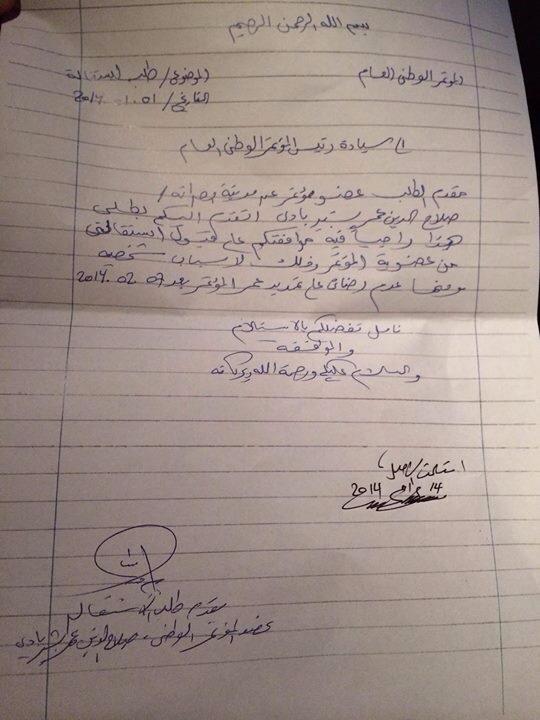 بسم الله الرحمن الرحيم
المؤتمر الوطني العام
الموضوع / طلب استقالة
التاريخ / 01.01.2014
إلى سيادة رئيس المؤتمر الوطني العام
مقدم الطلب عضو مؤتمر عن مدينة مصراته /
صلاح الدين عمر بشير بادي اتقدم اليكم بطلبي
هذا راجياً فيه موافقتكم على قبول استقالتي
من عضوية المؤتمر وذلك لاسباب شخصية
ومنها عدم رضائي على تمديد عمر المؤتمر بعد 07.02.2014
نامل تفضلكم بالاستلام
والموافقة
والسلام عليكم ورحمة الله وبركاته
استلمت الاصل
14 01 2014
مقدم طلب الاستقالة
عضو المؤتمر الوطني، صلاح الدين عمر بشير بادي